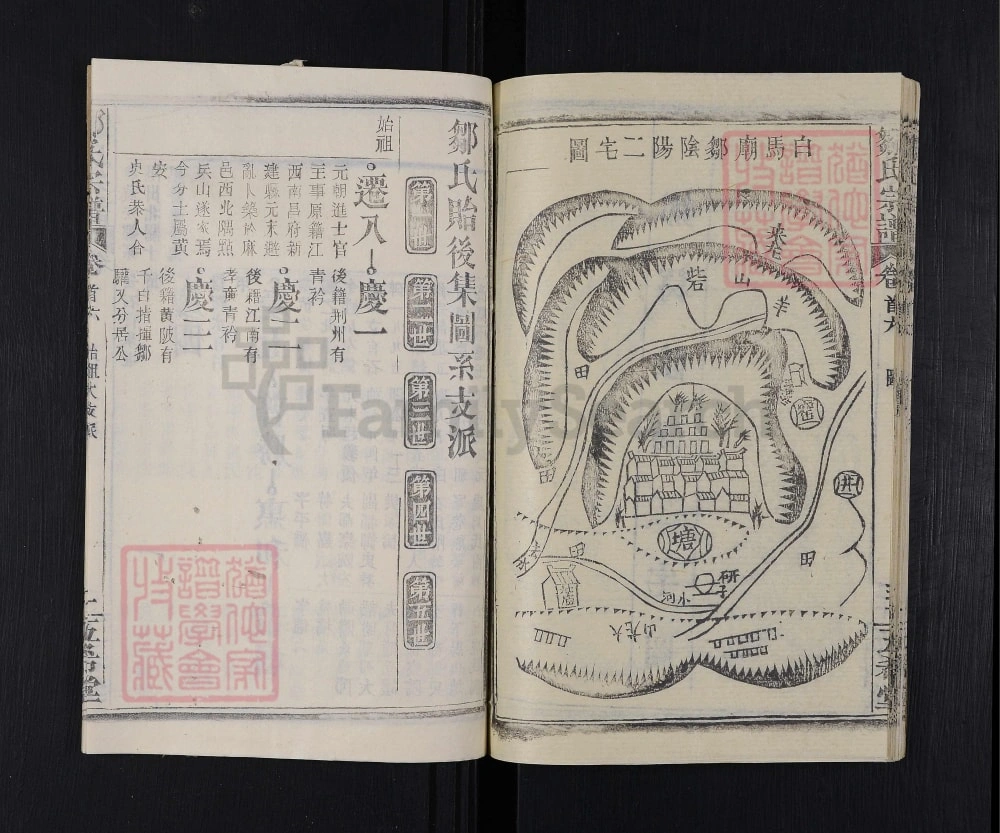 白馬廟鄒陰陽二宅圖
羊山砦
田
田
井
塘
田
田
研子
小河
火龙山
鄒氏宗譜
卷首六
圖
五知堂
鄒氏貽後集圖系支派
第一世
第二世
第三世
第四世
第五世
始祖
遷八
元朝進士官
主事原籍江
西南昌府新
建縣元末避
亂卜築於麻
邑西北隅㸃
兵山遂家焉
今分土屬黃
安
吳氏恭人合
慶一
後籍荆州有
青衿
慶二
後籍江南有
孝亷青衿
慶三
後籍黃陂有
千百指揮鄒
驥又分居公
鄒氏宗譜
卷首六
五知堂
譜學會
特藏
FamilySearch